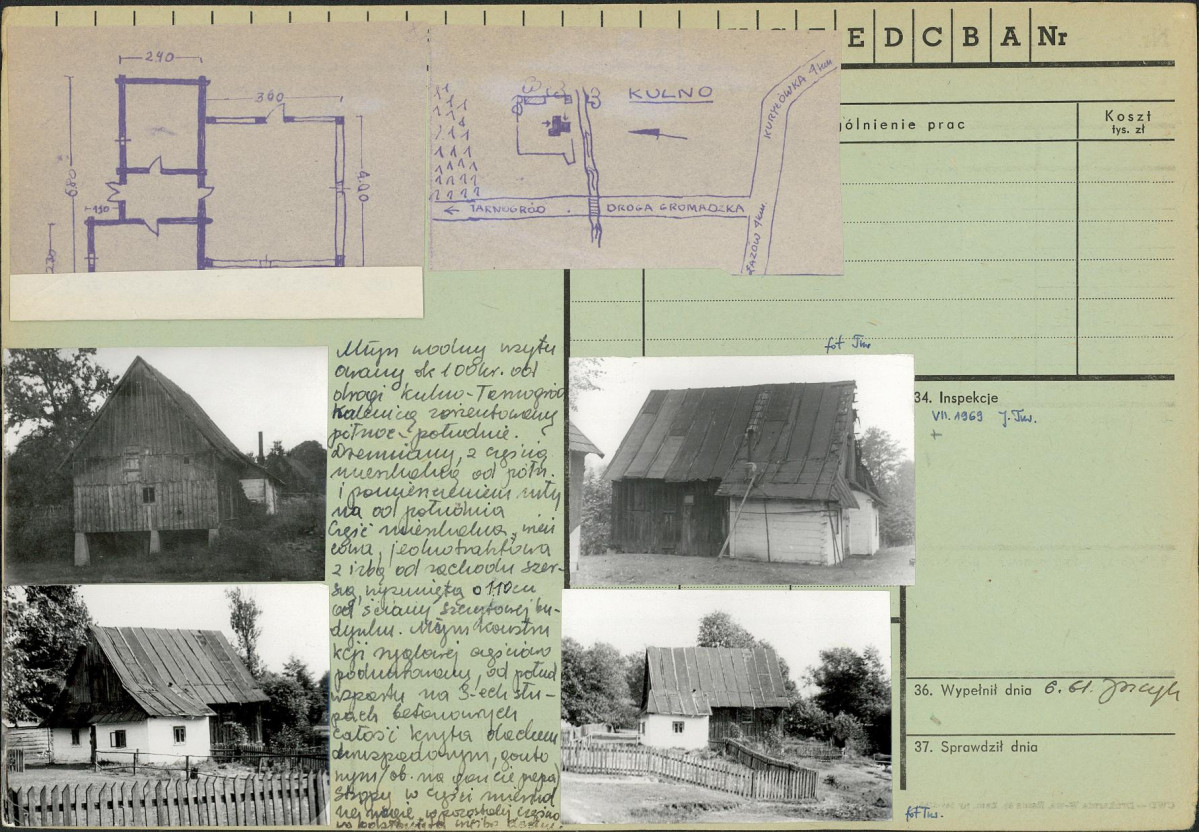 E D C B A Nr
ólnienie prac
Koszt
tys. zł
240
300
680
400
110
220
KULNO
KURYŁÓWKA 1 km
← TARNOGRÓD
DROGA GROMADZKA
ŁAZÓW 1 km.
fot Tur
Młyn wodny usytu
owany ok 100 kr. od
drogi Kulno-Tarnogród
Kalenicą zorientowany
północ-południe.
Drewniany, z częścią
mieszkalną od półn.
i pomieszczeniem
na od południa
Część mieszkalna,
jednotraktowa
z izbą od zachodu szer-
szą, wysuniętą o 110 cm
od ściany szczytowej bu-
dynku. Młyn konstru
kcji ryglowej częściowo
podmurowany, od połud
wsparty na 3-ech słu-
pach betonowych
całość kryta dachem
dwuspadowym, gonto
nym/ob. na goncie papa/
Stropy w części mieszkal
nej
34. Inspekcje
VII. 1969 J. Tur.
+
36. Wypełnił dnia 6.61.
37. Sprawdził dnia
fot Tur.